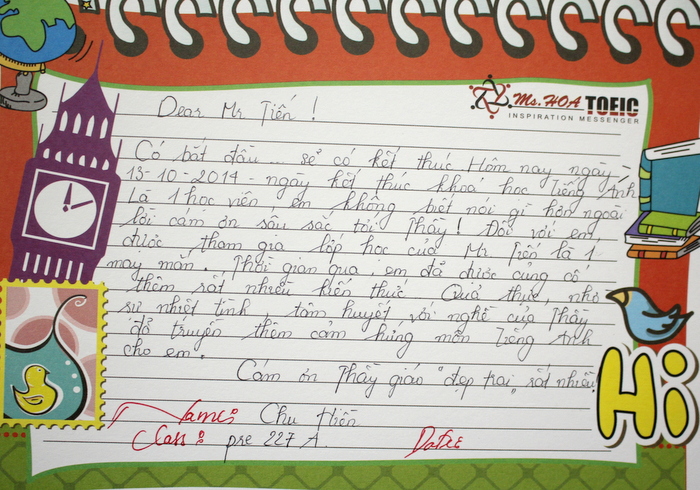 Dear Mr Tiến !
Ms. HOA TOEIC
INSPIRATION MESSENGER
Có bắt đầu ... sẽ có kết thúc. Hôm nay ngày
13-10-2014 - ngày kết thúc khoá học Tiếng Anh
Là 1 học viên em không biết nói gì hơn ngoài
lời cám ơn sâu sắc tới Thầy ! Đối với em
được tham gia lớp học của Mr Tiến là 1
may mắn. Thời gian qua, em đã được củng cố
thêm rất nhiều kiến thức. Quả thực, nhờ
sự nhiệt tình tâm huyết với nghề của Thầy
đã truyền thêm cảm hứng môn Tiếng Anh
cho em.
Cám ơn Thầy giáo "đẹp trai" rất nhiều!
Name: Chu Hiền
Class: pre 227 A.
Hi